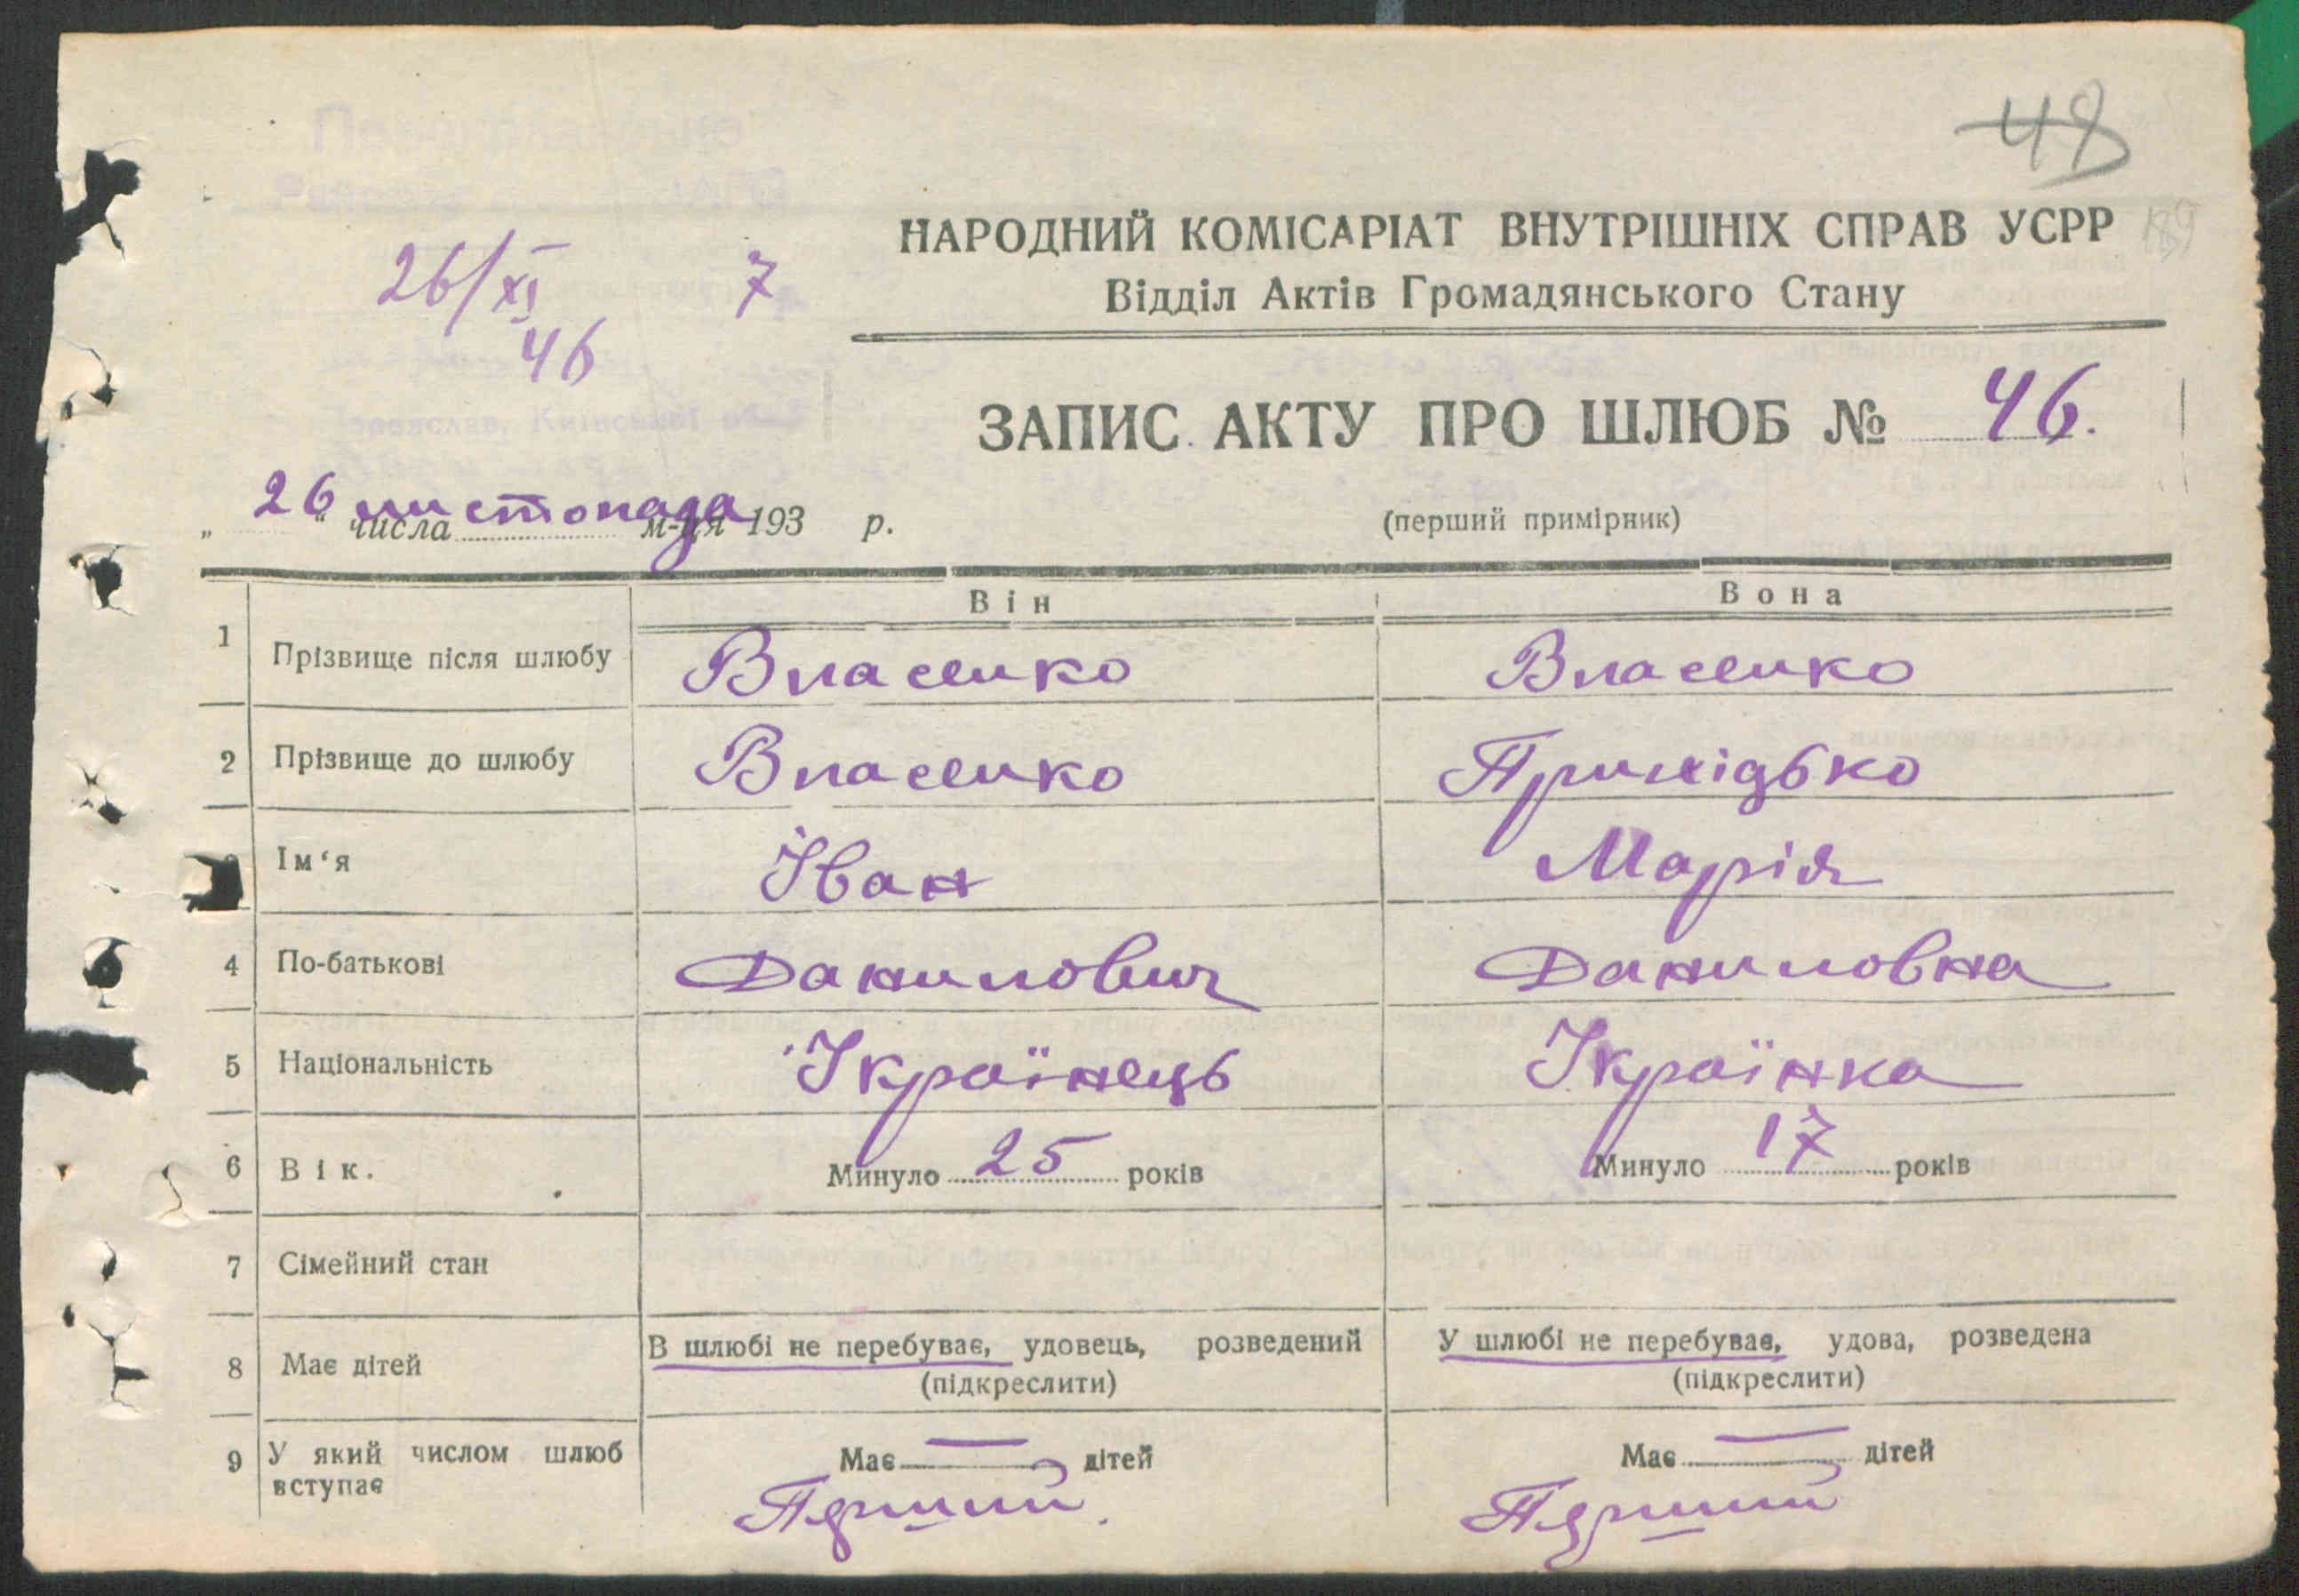 48
НАРОДНИЙ КОМІСАРІАТ ВНУТРІШНІХ СПРАВ УСРР
Відділ Актів Громадянського Стану
26/XI 7
46
ЗАПИС АКТУ ПРО ШЛЮБ № 46.
(перший примірник)
„26“ числа листопада м-ця 193 р.
Він Вона
1 Прізвище після шлюбу Власенко Власенко
2 Прізвище до шлюбу Власенко Прихідько
Ім‘я Іван Марія
4 По-батькові Данилович Даниловна
5 Національність Українець Українка
6 Вік. Минуло 25 років Минуло 17 років
7 Сімейний стан
8 Має дітей В шлюбі не перебуває, удовець, розведений У шлюбі не перебуває, удова, розведена
(підкреслити) (підкреслити)
9 У який числом шлюб вступає Має — дітей Має — дітей
Перший. Перший